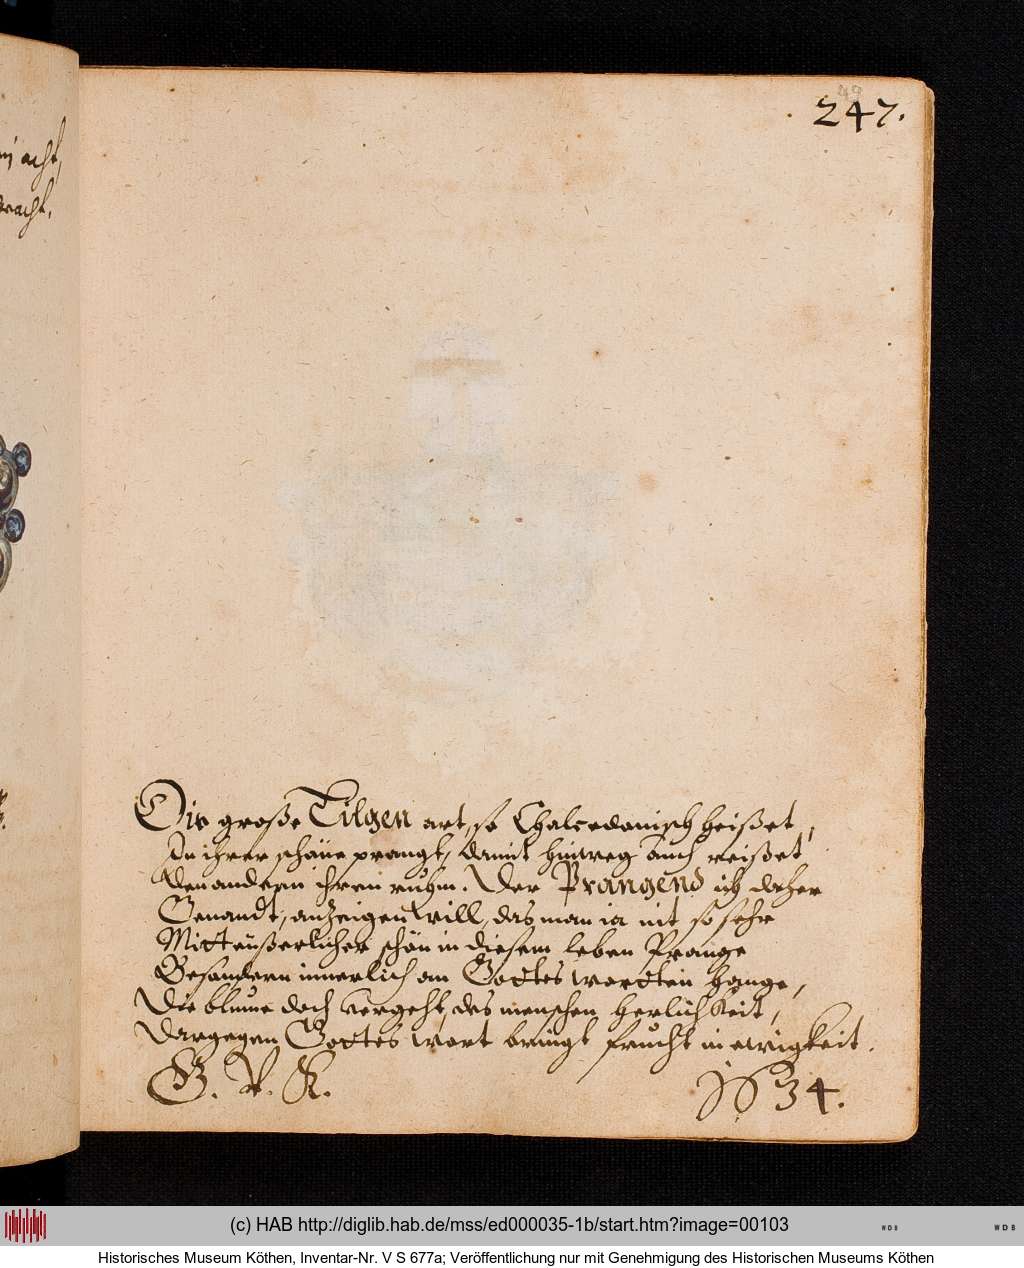 49
247.
acht,
Die große Tilgen art, so Chalcedonisch heißet,
In ihrer schöne prangt, damit hinweg auch reißet
Den andern ihren ruhm. Der Prangend ich daher
Genandt, anzeigen will, das man ia nit so sehr
Mitt eüßerlicher schön in diesem leben Prange
Besondern innerlich an Gottes wortten hange,
Die blume doch vergeht, des menschen herlichkeit,
Dargegen Gottes wort bringt frucht in ewigkeit.
G. V. K.
1634.
(c) HAB http://diglib.hab.de/mss/ed000035-1b/start.htm?image=00103
WDB
WDB
Historisches Museum Köthen, Inventar-Nr. V S 677a; Veröffentlichung nur mit Genehmigung des Historischen Museums Köthen